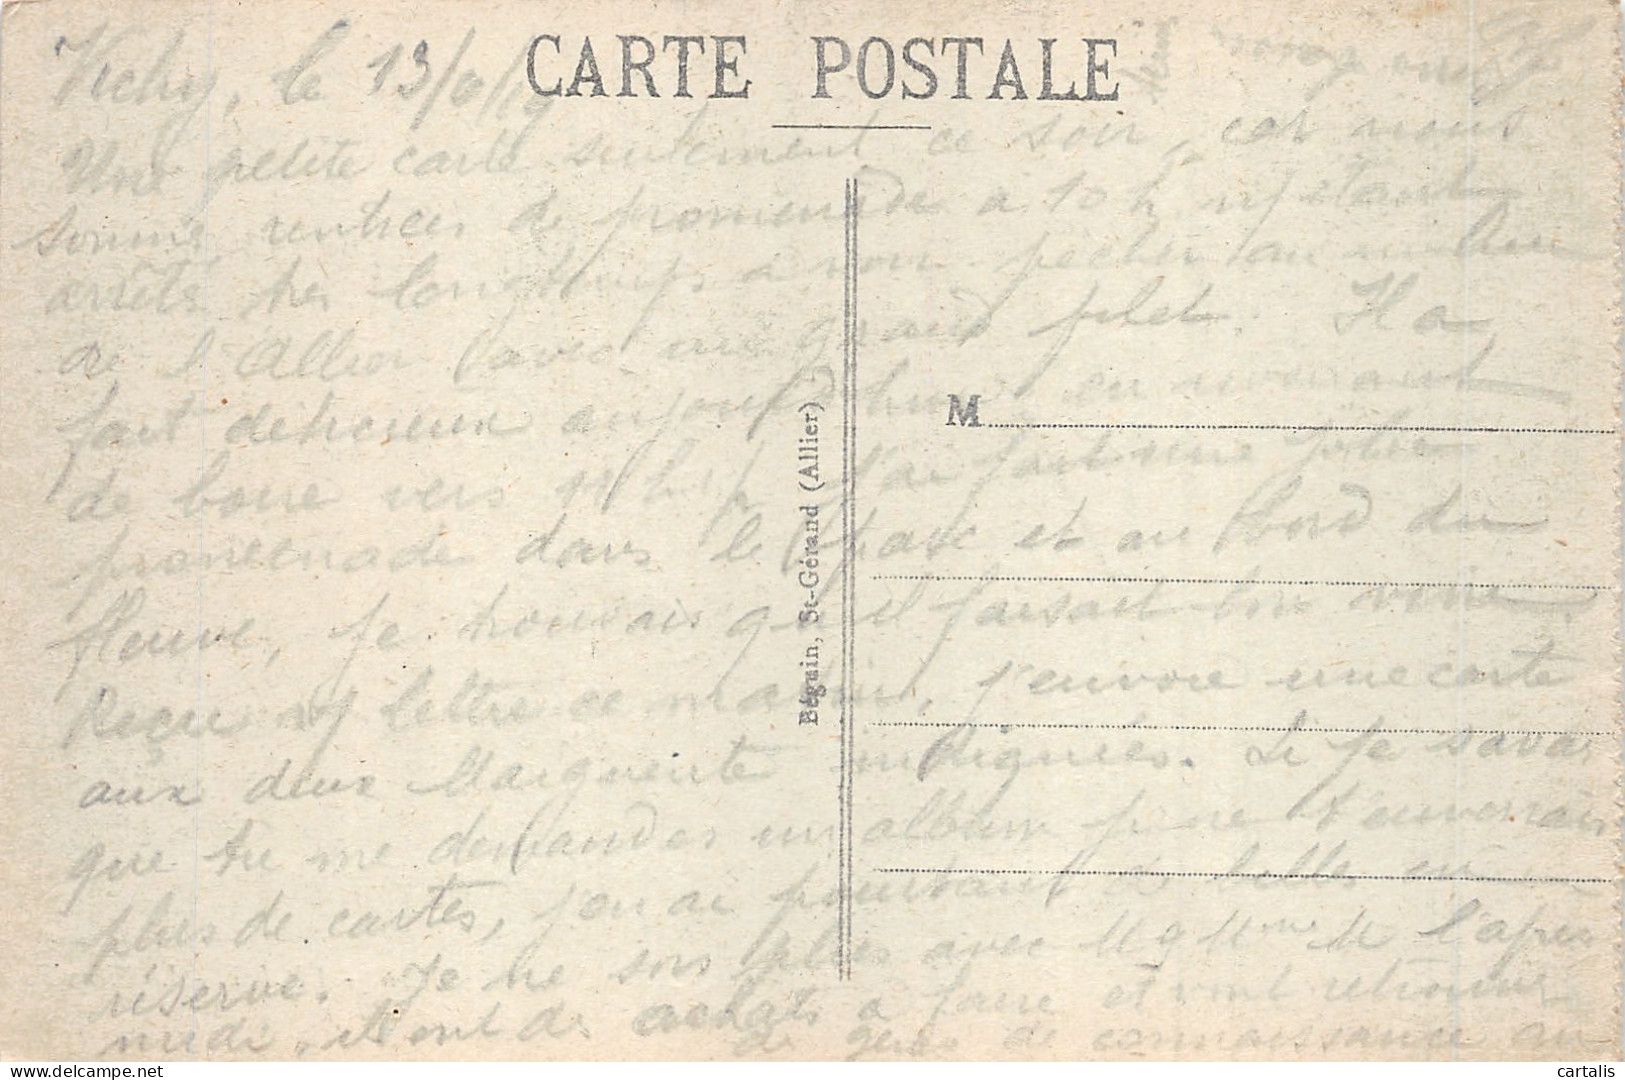 CARTE POSTALE
Vichy, le 13/
Une petite carte seulement ce soir, car nous
sommes rentrées de promenade à 10 h
arrêtés très longtemps à voir pêcher au milieu
de l'Allier avec un grand filet. Il a
fait délicieux aujourd'hui en revenant
de boire vers J'ai fait une jolie
promenade dans le Parc et au bord du
fleuve, je trouvais qu'il faisait bon vivre.
Reçu lettre ce matin, j'envoie une carte
aux deux Marguerite indiquées. Si je savais
que tu me demandes un album je t'enverrais
plus de cartes, j'en ai pourtant de belles en
réserve. Je ne sors plus avec M l'après
midi, ils ont des achats à faire et vont retrouver
des gens de connaissance au
Béguin, St-Gérand (Allier)
M
cartalis